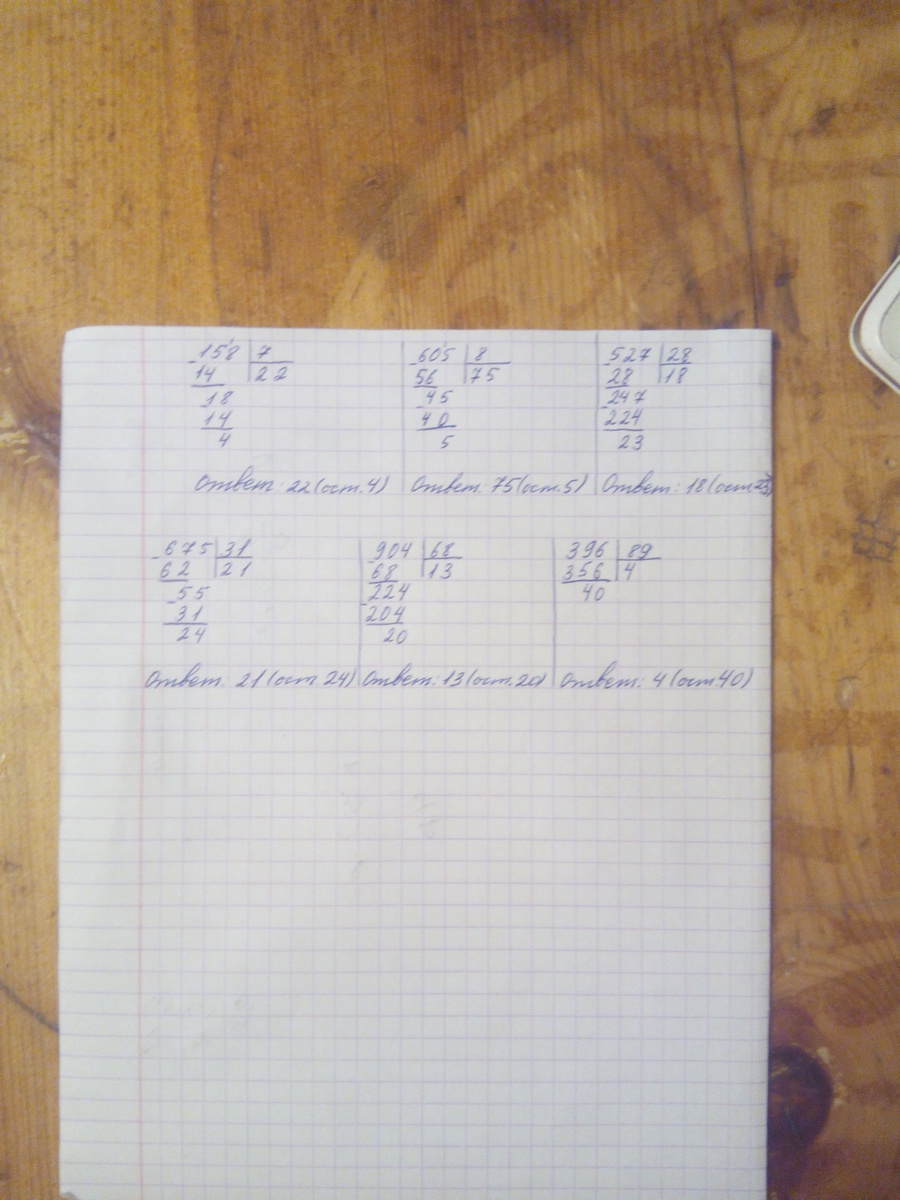 158 7 605 8 527 28
14 22 56 75 28 18
18 45 247
14 40 224
4 5 23
Ответ: 22(ост.4) Ответ: 75(ост.5) Ответ: 18(ост.23)
675 31 904 68 396 89
62 21 68 13 356 4
55 224 40
31 204
24 20
Ответ: 21(ост.24) Ответ: 13(ост.20) Ответ: 4(ост.40)